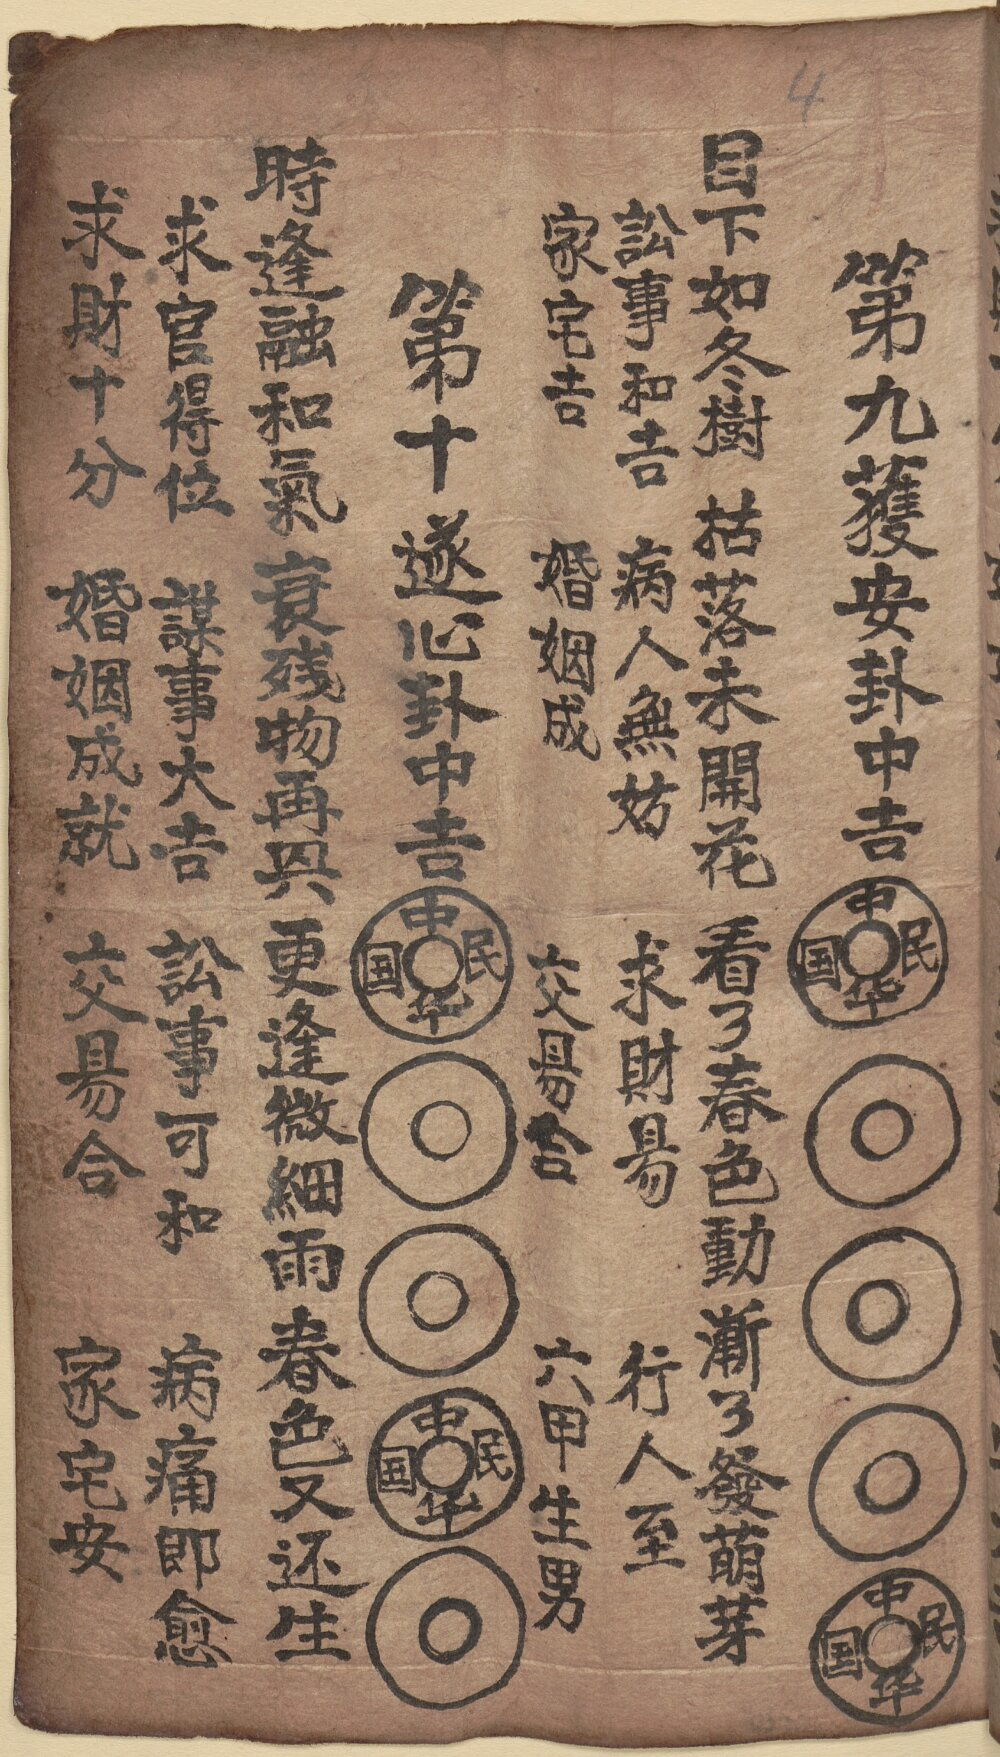 4
第九獲安卦中吉
中民华国
中民华国
目下如冬樹 枯落未開花 看了春色動 漸了發萌芽
訟事和吉 病人無姑 求財易 行人至
家宅吉 婚姻成 交易合 六甲生男
第十遂心卦中吉
中民华国
中民华国
時逢融和氣 衰残物再兴 更逢微細雨 春色又还生
求官得位 謀事大吉 訟事可和 病痛即愈
求財十分 婚姻成就 交易合 家宅安